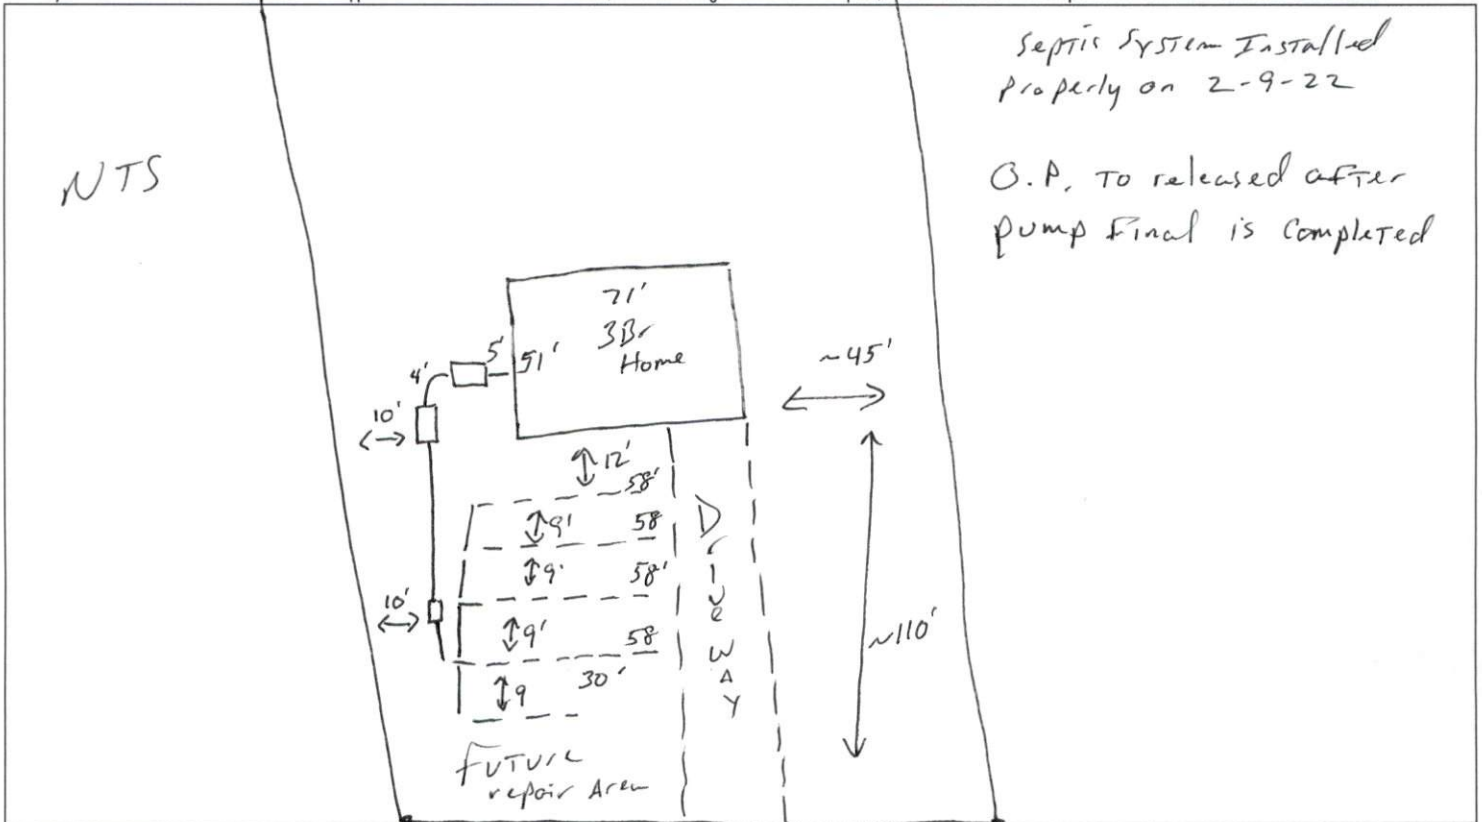 Septic System Installed
Properly on 2-9-22
NTS
O.P. To released after
pump Final is Completed
71'
3Br
Home
51'
5'
4'
10'
~45'
12'
58'
9'
58
9'
58'
10'
9'
58
30'
9
Driveway
~110'
Future
repair Area